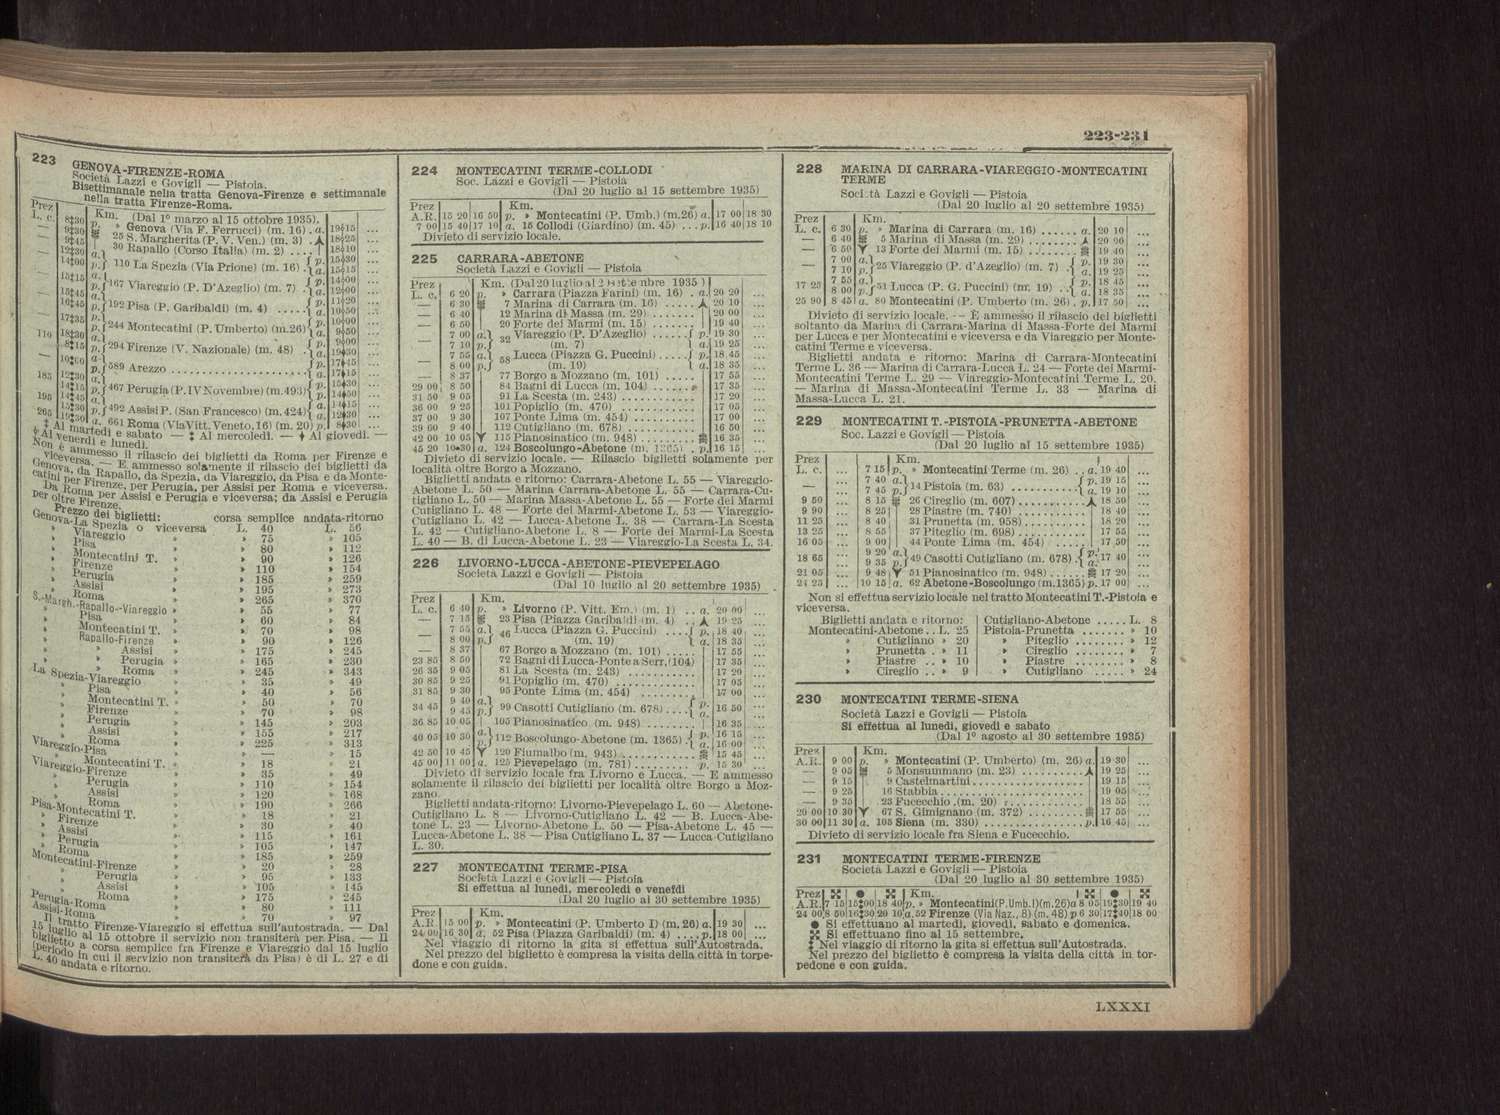 223-231
223 GENOVA-FIRENZE-ROMA
Società Lazzi e Govigli — Pistoia.
Bisettimanale nella tratta Genova-Firenze e settimanale
nella tratta Firenze-Roma.
Prez Km. (Dal 1º marzo al 15 ottobre 1935).
L. c. 8‡30 p. » Genova (Via F. Ferrucci) (m. 16) . a. 19 15 ...
— 9‡30 25 S. Margherita (P. V. Ven.) (m. 3) 18 25 ...
— 9‡45 30 Rapallo (Corso Italia) (m. 2) .... 18 10 ...
— 12‡30 a. 110 La Spezia (Via Prione) (m. 16) p. 15 30 ...
14‡00 p. a. 15 15 ...
— 15‡15 a. 167 Viareggio (P. D'Azeglio) (m. 7) p. 14 00 ...
15‡45 p. a. 12 00 ...
— 16‡45 a. 192 Pisa (P. Garibaldi) (m. 4) p. 11 20 ...
p. a. 10 50 ...
17‡35 244 Montecatini (P. Umberto) (m. 26) p. 10 00 ...
p. a. 9 50 ...
110 18‡30 a. 294 Firenze (V. Nazionale) (m. 48) p. 9 00 ...
8‡15 p. a. 19 30 ...
— 589 Arezzo p. 17 45 ...
a. 17 15 ...
185 12‡30 a. 467 Perugia (P. IV Novembre) (m. 493) p. 15 30 ...
14‡15 p. a. 14 50 ...
195 14‡45 a. 492 Assisi P. (San Francesco) (m. 424) p. 14 15 ...
15‡30 p. a. 12 30 ...
265 19‡30 a. 661 Roma (Via Vitt. Veneto, 16) (m. 20) p. 8 30 ...
‡ Al martedì e sabato — ‡ Al mercoledì. — ♦ Al giovedì. —
Al venerdì e lunedì.
Non è ammesso il rilascio dei biglietti da Roma per Firenze e
viceversa. — È ammesso solamente il rilascio dei biglietti da
Genova, da Rapallo, da Spezia, da Viareggio, da Pisa e da Monte-
catini per Firenze, per Perugia, per Assisi per Roma e viceversa.
Da Roma per Assisi e Perugia e viceversa; da Assisi e Perugia
per oltre Firenze.
Prezzo dei biglietti: corsa semplice andata-ritorno
Genova-La Spezia o viceversa L. 40 L. 56
» Viareggio » » 75 » 105
» Pisa » » 80 » 112
» Montecatini T. » » 90 » 126
» Firenze » » 110 » 154
» Perugia » » 185 » 259
» Assisi » » 195 » 273
» Roma » » 265 » 370
S.-Margh.-Rapallo--Viareggio » » 55 » 77
» Pisa » » 60 » 84
» Montecatini T. » » 70 » 98
» Rapallo-Firenze » » 90 » 126
» » Assisi » » 175 » 245
» » Perugia » » 165 » 230
» » Roma » » 245 » 343
La Spezia-Viareggio » » 35 » 49
» Pisa » » 40 » 56
» Montecatini T. » » 50 » 70
» Firenze » » 70 » 98
» Perugia » » 145 » 203
» Assisi » » 155 » 217
» Roma » » 225 » 313
Viareggio-Pisa » » — » 15
» Montecatini T. » » 18 » 21
Viareggio-Firenze » » 35 » 49
» Perugia » » 110 » 154
» Assisi » » 120 » 168
» Roma » » 190 » 266
Pisa-Montecatini T. » » 18 » 21
» Firenze » » 30 » 40
» Assisi » » 115 » 161
» Perugia » » 105 » 147
» Roma » » 185 » 259
Montecatini-Firenze » » 20 » 28
» Perugia » » 95 » 133
» Assisi » » 105 » 145
» Roma » » 175 » 245
Perugia-Roma » » 80 » 111
Assisi-Roma » » 70 » 97
Il tratto Firenze-Viareggio si effettua sull'autostrada. — Dal
15 luglio al 15 ottobre il servizio non transiterà per Pisa. — Il
biglietto a corsa semplice fra Firenze e Viareggio dal 15 luglio
(periodo in cui il servizio non transiterà da Pisa) è di L. 27 e di
L. 40 andata e ritorno.
224 MONTECATINI TERME-COLLODI
Soc. Lazzi e Govigli — Pistoia
(Dal 20 luglio al 15 settembre 1935)
Prez Km.
A.R. 15 20 16 50 p. » Montecatini (P. Umb.) (m. 26) a. 17 00 18 30
7 00 15 40 17 10 a. 15 Collodi (Giardino) (m. 45) ... p. 16 40 18 10
Divieto di servizio locale.
225 CARRARA-ABETONE
Società Lazzi e Govigli — Pistoia
Prez Km. (Dal 20 luglio al settembre 1935)
L. c. 6 20 p. » Carrara (Piazza Farini) (m. 16) . a. 20 20 ...
— 6 30 7 Marina di Carrara (m. 16) ..... 20 10 ...
— 6 40 12 Marina di Massa (m. 29) ....... 20 00 ...
— 6 50 20 Forte dei Marmi (m. 15) ....... 19 40 ...
— 7 00 a. 32 Viareggio (P. D'Azeglio) p. 19 30 ...
7 10 p. (m. 7) a. 19 25 ...
— 7 55 a. 58 Lucca (Piazza G. Puccini) p. 18 45 ...
8 00 p. (m. 19) a. 18 35 ...
— 8 37 77 Borgo a Mozzano (m. 101) ..... 17 55 ...
29 00 8 50 84 Bagni di Lucca (m. 104) ....... 17 35 ...
31 50 9 05 91 La Scesta (m. 243) ........... 17 20 ...
36 00 9 25 101 Popiglio (m. 470) ........... 17 05 ...
37 00 9 30 107 Ponte Lima (m. 454) ......... 17 00 ...
39 60 9 40 112 Cutigliano (m. 678) .......... 16 50 ...
42 00 10 05 115 Pianosinatico (m. 948) ........ 16 35 ...
45 20 10 30 a. 124 Boscolungo-Abetone (m. 1365) . p. 16 15 ...
Divieto di servizio locale. — Rilascio biglietti solamente per
località oltre Borgo a Mozzano.
Biglietti andata e ritorno: Carrara-Abetone L. 55 — Viareggio-
Abetone L. 50 — Marina Carrara-Abetone L. 55 — Carrara-Cu-
tigliano L. 50 — Marina Massa-Abetone L. 55 — Forte dei Marmi
Cutigliano L. 48 — Forte dei Marmi-Abetone L. 53 — Viareggio-
Cutigliano L. 42 — Lucca-Abetone L. 38 — Carrara-La Scesta
L. 42 — Cutigliano-Abetone L. 8 — Forte dei Marmi-La Scesta
L. 40 — B. di Lucca-Abetone L. 23 — Viareggio-La Scesta L. 34.
226 LIVORNO-LUCCA-ABETONE-PIEVEPELAGO
Società Lazzi e Govigli — Pistoia
(Dal 10 luglio al 20 settembre 1935)
Prez Km.
L. c. 6 40 p. » Livorno (P. Vitt. Em.) (m. 1) .. a. 20 00 ...
— 7 15 23 Pisa (Piazza Garibaldi) (m. 4) .. 19 25 ...
— 7 55 a. 46 Lucca (Piazza G. Puccini) p. 18 40 ...
8 00 p. (m. 19) a. 18 35 ...
— 8 37 67 Borgo a Mozzano (m. 101) ..... 17 55 ...
23 85 8 50 72 Bagni di Lucca-Ponte a Serr. (104) 17 35 ...
26 35 9 05 81 La Scesta (m. 243) ........... 17 20 ...
30 85 9 25 91 Popiglio (m. 470) ............ 17 05 ...
31 85 9 30 95 Ponte Lima (m. 454) .......... 17 00 ...
34 45 9 40 a. 99 Casotti Cutigliano (m. 678) p. 16 50 ...
9 45 p. a.
36 85 10 05 105 Pianosinatico (m. 948) ........ 16 35 ...
40 05 10 30 a. 112 Boscolungo-Abetone (m. 1365) p. 16 15 ...
p. a. 16 00 ...
42 50 10 45 120 Fiumalbo (m. 943) ............ 15 45 ...
45 00 11 00 a. 125 Pievepelago (m. 781) .......... p. 15 30 ...
Divieto di servizio locale fra Livorno e Lucca. — È ammesso
solamente il rilascio dei biglietti per località oltre Borgo a Moz-
zano.
Biglietti andata-ritorno: Livorno-Pievepelago L. 60 — Abetone-
Cutigliano L. 8 — Livorno-Cutigliano L. 42 — B. Lucca-Abe-
tone L. 23 — Livorno-Abetone L. 50 — Pisa-Abetone L. 45 —
Lucca-Abetone L. 38 — Pisa Cutigliano L. 37 — Lucca Cutigliano
L. 30.
227 MONTECATINI TERME-PISA
Società Lazzi e Govigli — Pistoia
Si effettua al lunedì, mercoledì e venerdì
(Dal 20 luglio al 30 settembre 1935)
Prez Km.
A.R. 15 00 p. » Montecatini (P. Umberto I) (m. 26) a. 19 30 ...
24 00 16 30 a. 52 Pisa (Piazza Garibaldi) (m. 4) ... p. 18 00 ...
Nel viaggio di ritorno la gita si effettua sull'Autostrada.
Nel prezzo del biglietto è compresa la visita della città in torpe-
done e con guida.
228 MARINA DI CARRARA-VIAREGGIO-MONTECATINI
TERME
Società Lazzi e Govigli — Pistoia
(Dal 20 luglio al 20 settembre 1935)
Prez Km.
L. c. 6 30 p. » Marina di Carrara (m. 16) ...... a. 20 10 ...
— 6 40 5 Marina di Massa (m. 29) ........ 20 00 ...
— 6 50 13 Forte dei Marmi (m. 15) ........ 19 40 ...
— 7 00 a. 25 Viareggio (P. d'Azeglio) (m. 7) p. 19 30 ...
7 10 p. a. 19 25 ...
17 25 7 55 a. 51 Lucca (P. G. Puccini) (m. 19) p. 18 45 ...
8 00 p. a. 18 35 ...
25 90 8 45 a. 80 Montecatini (P. Umberto) (m. 26) . p. 17 50 ...
Divieto di servizio locale. — È ammesso il rilascio dei biglietti
soltanto da Marina di Carrara-Marina di Massa-Forte dei Marmi
per Lucca e per Montecatini e viceversa e da Viareggio per Monte-
catini Terme e viceversa.
Biglietti andata e ritorno: Marina di Carrara-Montecatini
Terme L. 36 — Marina di Carrara-Lucca L. 24 — Forte dei Marmi-
Montecatini Terme L. 29 — Viareggio-Montecatini Terme L. 20.
— Marina di Massa-Montecatini Terme L. 33 — Marina di
Massa-Lucca L. 21.
229 MONTECATINI T.-PISTOIA-PRUNETTA-ABETONE
Soc. Lazzi e Govigli — Pistoia
(Dal 20 luglio al 15 settembre 1935)
Prez Km.
L. c. ... 7 15 p. » Montecatini Terme (m. 26) .. a. 19 40 ...
... 7 40 a. 14 Pistoia (m. 63) p. 19 15 ...
... 7 45 p. a. 19 10 ...
9 50 ... 8 15 26 Cireglio (m. 607) ............ 18 50 ...
9 90 ... 8 25 28 Piastre (m. 740) ............. 18 40 ...
11 25 ... 8 40 31 Prunetta (m. 958) ............ 18 20 ...
13 25 ... 8 55 37 Piteglio (m. 698) ............. 17 55 ...
16 05 ... 9 00 44 Ponte Lima (m. 454) ......... 17 50 ...
18 65 ... 9 20 a. 49 Casotti Cutigliano (m. 678) p. 17 40 ...
... 9 35 p. a. ...
21 05 ... 9 48 51 Pianosinatico (m. 948) ...... 17 20 ...
24 25 ... 10 15 a. 62 Abetone-Boscolungo (m. 1365) p. 17 00 ...
Non si effettua servizio locale nel tratto Montecatini T.-Pistoia e
viceversa.
Biglietti andata e ritorno: Cutigliano-Abetone ..... L. 8
Montecatini-Abetone .. L. 25 Pistoia-Prunetta ....... » 10
» Cutigliano » 20 » Piteglio ........ » 12
» Prunetta . » 11 » Cireglio ........ » 7
» Piastre .. » 10 » Piastre ........ » 8
» Cireglio .. » 9 » Cutigliano ..... » 24
230 MONTECATINI TERME-SIENA
Società Lazzi e Govigli — Pistoia
Si effettua al lunedì, giovedì e sabato
(Dal 1º agosto al 30 settembre 1935)
Prez Km.
A.R. 9 00 p. » Montecatini (P. Umberto) (m. 26) a. 19 30 ...
— 9 05 5 Monsummano (m. 23) .......... 19 25 ...
— 9 15 9 Castelmartini .................. 19 15 ...
— 9 25 16 Stabbia ....................... 19 05 ...
— 9 35 23 Fucecchio (m. 20) ............. 18 55 ...
20 00 10 30 67 S. Gimignano (m. 372) ......... 17 55 ...
30 00 11 30 a. 105 Siena (m. 330) ................ p. 16 45 ...
Divieto di servizio locale fra Siena e Fucecchio.
231 MONTECATINI TERME-FIRENZE
Società Lazzi e Govigli — Pistoia
(Dal 20 luglio al 30 settembre 1935)
Prez ● Km. ●
A.R. 7 15 15‡00 18 40 p. » Montecatini (P. Umb. I) (m. 26) a 8 05 19‡30 19 40
24 00 8 50 16‡30 20 10 a. 52 Firenze (Via Naz., 8) (m. 48) p 6 30 17‡40 18 00
● Si effettuano al martedì, giovedì, sabato e domenica.
Si effettuano fino al 15 settembre.
‡ Nel viaggio di ritorno la gita si effettua sull'Autostrada.
Nel prezzo del biglietto è compresa la visita della città in tor-
pedone e con guida.
LXXXI